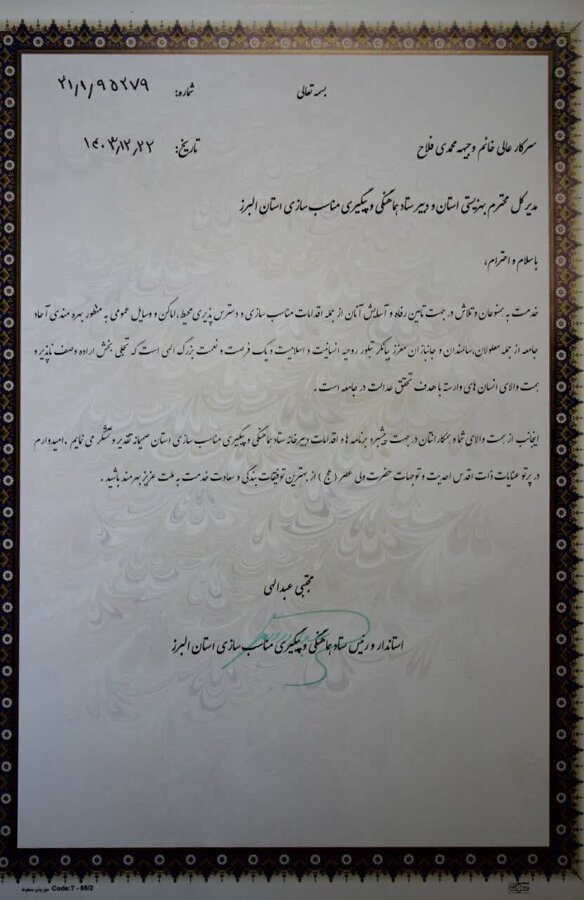 بسمه تعالی
شماره: ۲۱/۱/۹۵۲۷۹
تاریخ: ۱۴۰۳/۱۲/۲۲
سرکار عالی خانم وجیهه محمدی فلاح
مدیر کل محترم بهزیستی استان و دبیر ستاد هماهنگی و پیگیری مناسب سازی استان البرز
با سلام و احترام،
خدمت به همنوعان و تلاش در جهت تامین رفاه و آسایش آنان از جمله اقدامات مناسب سازی و دسترس پذیری محیط، اماکن و وسایل عمومی به منظور بهره مندی آحاد
جامعه از جمله معلولان، سالمندان و جانبازان معزز بیانگر تبلور روحیه انسانیت و اسلامیت و یک فرصت و نعمت بزرگ الهی است که تجلی بخش اراده وصف ناپذیر و
همت والای انسان های وارسته با هدف تحقق عدالت در جامعه است .
اینجانب از همت والای شما و همکارانتان در جهت پیشبرد برنامه ها و اقدامات دبیرخانه ستاد هماهنگی و پیگیری مناسب سازی استان صمیمانه تقدیر و تشکر می نمایم . امیدوارم
در پرتو عنایات ذات اقدس احدیت و توجهات حضرت ولی عصر (عج) از بهترین توفیقات بندگی و سعادت خدمت به ملت عزیز بهره مند باشید .
مجتبی عبدالهی
استاندار و رئیس ستاد هماهنگی و پیگیری مناسب سازی استان البرز
Code:T - 98/2 حق چاپ محفوظ